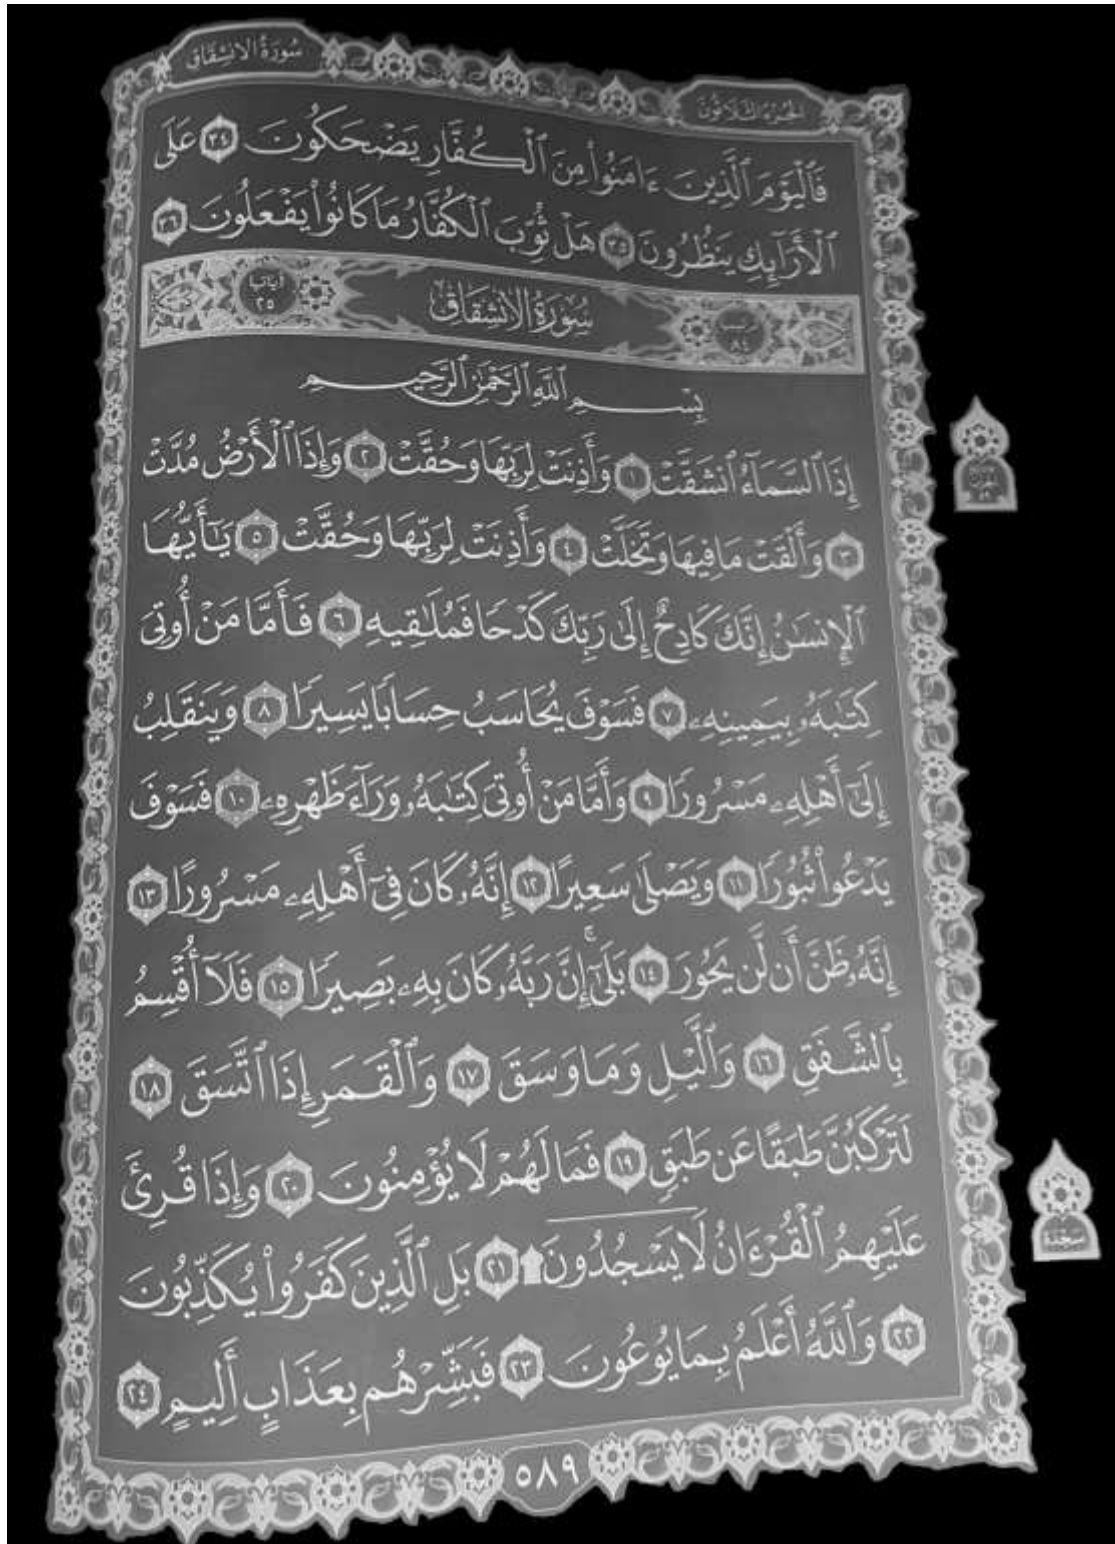 سُورَةُ الانْشِقَاق
الجُزْءُ الثَّلَاثُونَ
فَٱلْيَوْمَ ٱلَّذِينَ ءَامَنُوا۟ مِنَ ٱلْكُفَّارِ يَضْحَكُونَ ٣٤ عَلَى
ٱلْأَرَآئِكِ يَنظُرُونَ ٣٥ هَلْ ثُوِّبَ ٱلْكُفَّارُ مَا كَانُوا۟ يَفْعَلُونَ ٣٦
ترتيبها ٨٤ سُورَةُ الانْشِقَاق آياتها ٢٥
بِسْمِ ٱللَّهِ ٱلرَّحْمَٰنِ ٱلرَّحِيمِ
إِذَا ٱلسَّمَآءُ ٱنشَقَّتْ ١ وَأَذِنَتْ لِرَبِّهَا وَحُقَّتْ ٢ وَإِذَا ٱلْأَرْضُ مُدَّتْ
٣ وَأَلْقَتْ مَا فِيهَا وَتَخَلَّتْ ٤ وَأَذِنَتْ لِرَبِّهَا وَحُقَّتْ ٥ يَٰٓأَيُّهَا
ٱلْإِنسَٰنُ إِنَّكَ كَادِحٌ إِلَىٰ رَبِّكَ كَدْحًا فَمُلَٰقِيهِ ٦ فَأَمَّا مَنْ أُوتِىَ
كِتَٰبَهُۥ بِيَمِينِهِۦ ٧ فَسَوْفَ يُحَاسَبُ حِسَابًا يَسِيرًا ٨ وَيَنقَلِبُ
إِلَىٰٓ أَهْلِهِۦ مَسْرُورًا ٩ وَأَمَّا مَنْ أُوتِىَ كِتَٰبَهُۥ وَرَآءَ ظَهْرِهِۦ ١٠ فَسَوْفَ
يَدْعُوا۟ ثُبُورًا ١١ وَيَصْلَىٰ سَعِيرًا ١٢ إِنَّهُۥ كَانَ فِىٓ أَهْلِهِۦ مَسْرُورًا ١٣
إِنَّهُۥ ظَنَّ أَن لَّن يَحُورَ ١٤ بَلَىٰٓۚ إِنَّ رَبَّهُۥ كَانَ بِهِۦ بَصِيرًا ١٥ فَلَآ أُقْسِمُ
بِٱلشَّفَقِ ١٦ وَٱلَّيْلِ وَمَا وَسَقَ ١٧ وَٱلْقَمَرِ إِذَا ٱتَّسَقَ ١٨
لَتَرْكَبُنَّ طَبَقًا عَن طَبَقٍ ١٩ فَمَا لَهُمْ لَا يُؤْمِنُونَ ٢٠ وَإِذَا قُرِئَ
عَلَيْهِمُ ٱلْقُرْءَانُ لَا يَسْجُدُونَ ۩ ٢١ بَلِ ٱلَّذِينَ كَفَرُوا۟ يُكَذِّبُونَ
٢٢ وَٱللَّهُ أَعْلَمُ بِمَا يُوعُونَ ٢٣ فَبَشِّرْهُم بِعَذَابٍ أَلِيمٍ ٢٤
سَجْدَة
٥٨٩